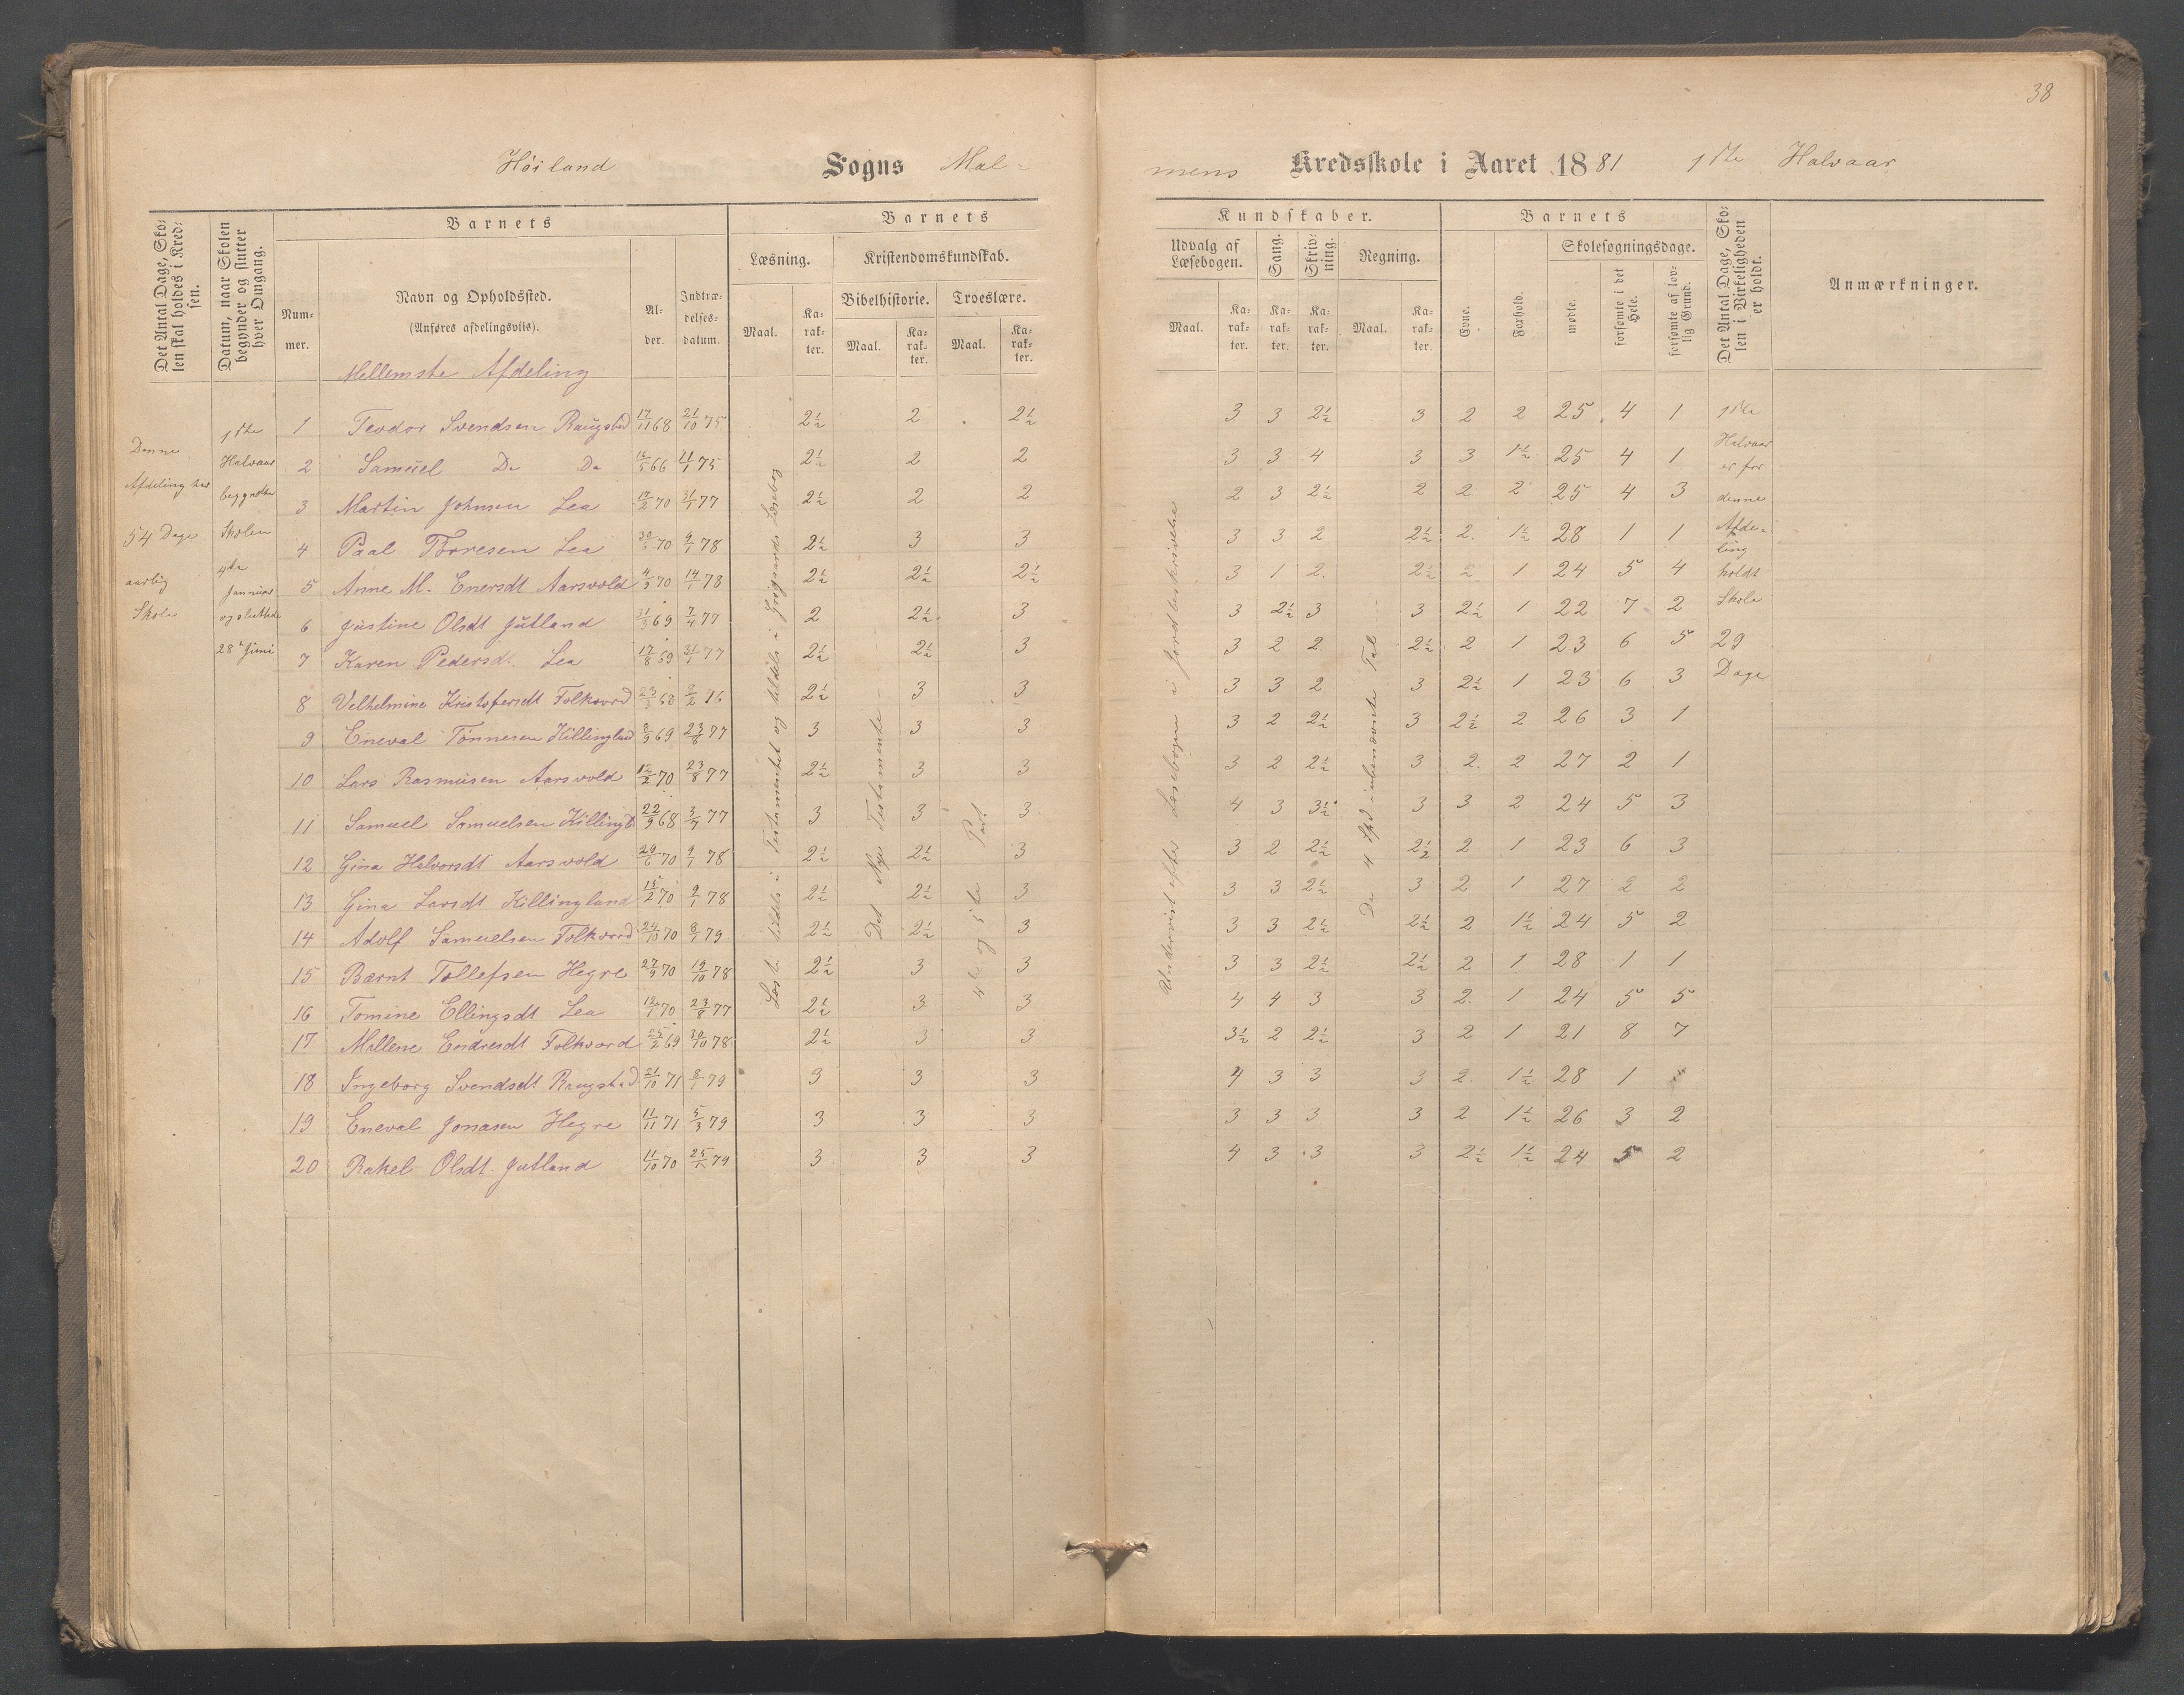 38
Høiland Sogns Mal-
mens Kredsskole i Aaret 1881 1ste Halvaar
Det Antal Dage, Skolen skal holdes i Kredsen.
Datum, naar Skolen begynder og slutter hver Omgang.
Barnets
Nummer.
Navn og Opholdssted.
(Anføres afdelingsviis).
Alder.
Indtrædelsesdatum.
Barnets
Læsning.
Maal.
Karakter.
Kristendomskundskab.
Bibelhistorie.
Maal.
Karakter.
Troeslære.
Maal.
Karakter.
Kundskaber.
Udvalg af Læsebogen.
Maal.
Karakter.
Sang.
Karakter.
Skrivning.
Karakter.
Regning.
Maal.
Karakter.
Barnets
Evne.
Forhold.
Skolesøgningsdage.
mødte.
forsømte i det Hele.
forsømte af lovlig Grund.
Det Antal Dage, Skolen i Virkeligheden er holdt.
Anmærkninger.
Mellemste Afdeling
Denne Afdeling har 54 Dage aarlig Skole
1ste Halvaar begyndte Skolen 4de Januar og sluttede 28de Juni
1 Teodor Svendsen Raugstad 17/11 68 21/10 75 2½ 2 2½ 3 3 2½ 3 2 2 25 4 1
2 Samuel Do Do 16/5 66 11/1 75 2½ 2 2 3 3 4 3 3 1½ 25 4 1
3 Martin Johnsen Lea 17/2 70 31/1 77 2½ 2 2 2 3 2½ 2 2 2 25 4 3
4 Paal Torresen Lea 70 9/1 78 2½ 3 3 3 3 2 2½ 2 1½ 28 1 1
5 Anne M. Enersdt Aarsvold 4/9 70 14/1 78 2½ 2½ 2½ 3 1 2 2½ 2 1 24 5 4
6 Justine Olsdt Jutland 31/3 69 7/4 77 2 2½ 3 3 2½ 3 3 2½ 1 22 7 2
7 Karen Pedersdt Lea 17/8 69 31/1 77 2½ 2½ 3 3 2 2 2½ 2 1 23 6 5
8 Velhelmine Kristofersdt Folkvord 23/3 68 8/2 76 2½ 3 3 3 3 2 3 2½ 1 23 6 3
9 Eneval Tønnesen Killingland 8/9 69 23/8 77 3 3 3 3 2 2½ 3 2½ 2 26 3 1
10 Lars Rasmusen Aarsvold 12/2 70 23/8 77 2½ 3 3 3 2 2½ 3 2 2 27 2 1
11 Samuel Samuelsen Killingl 22/9 68 3/7 77 3 3 3 4 3 3½ 3 3 2 24 5 3
12 Gina Halvorsdt Aarsvold 29/6 70 9/1 78 2½ 2½ 3 3 2 2½ 2½ 2 1 23 6 3
13 Gina Larsdt Killingland 15/2 70 9/1 78 2½ 2½ 3 3 3 2½ 3 2 1 27 2 2
14 Adolf Samuelsen Folkvord 24/10 70 8/1 79 2½ 2½ 3 3 3 2½ 2½ 2 1½ 24 5 2
15 Bærnt Tollefsen Hegre 27/9 70 19/10 78 2½ 3 3 3 3 2½ 2½ 2 1 28 1 1
16 Tomine Ellingsdt Lea 12/1 70 23/8 77 2½ 3 3 4 4 3 3 2 1 24 5 5
17 Mallene Endresdt Folkvord 25/2 69 30/10 78 2½ 3 3 3½ 2 2½ 3 2 1 21 8 7
18 Ingeborg Svendsdt Raugstad 21/10 71 8/1 79 3 3 3 4 3 3 3 2 1½ 28 1
19 Eneval Jonasen Hegre 11/11 71 5/3 79 3 3 3 3 3 3 3 2 1½ 26 3 2
20 Rakel Olsdt Jutland 11/10 70 25/1 79 3 3 3 4 3 3 3 2½ 1½ 24 5 2
Læste tildels i Testamentet og tildels i Grøgaards Læsebog
Det Nye Testamente
4de og 5te Part
Undervist efter Læsebogen i Jordbeskrivelse
De 4 Spd i ubenævnte Tal
1ste Halvaar er for denne Afdeling holdt Skole 29 Dage